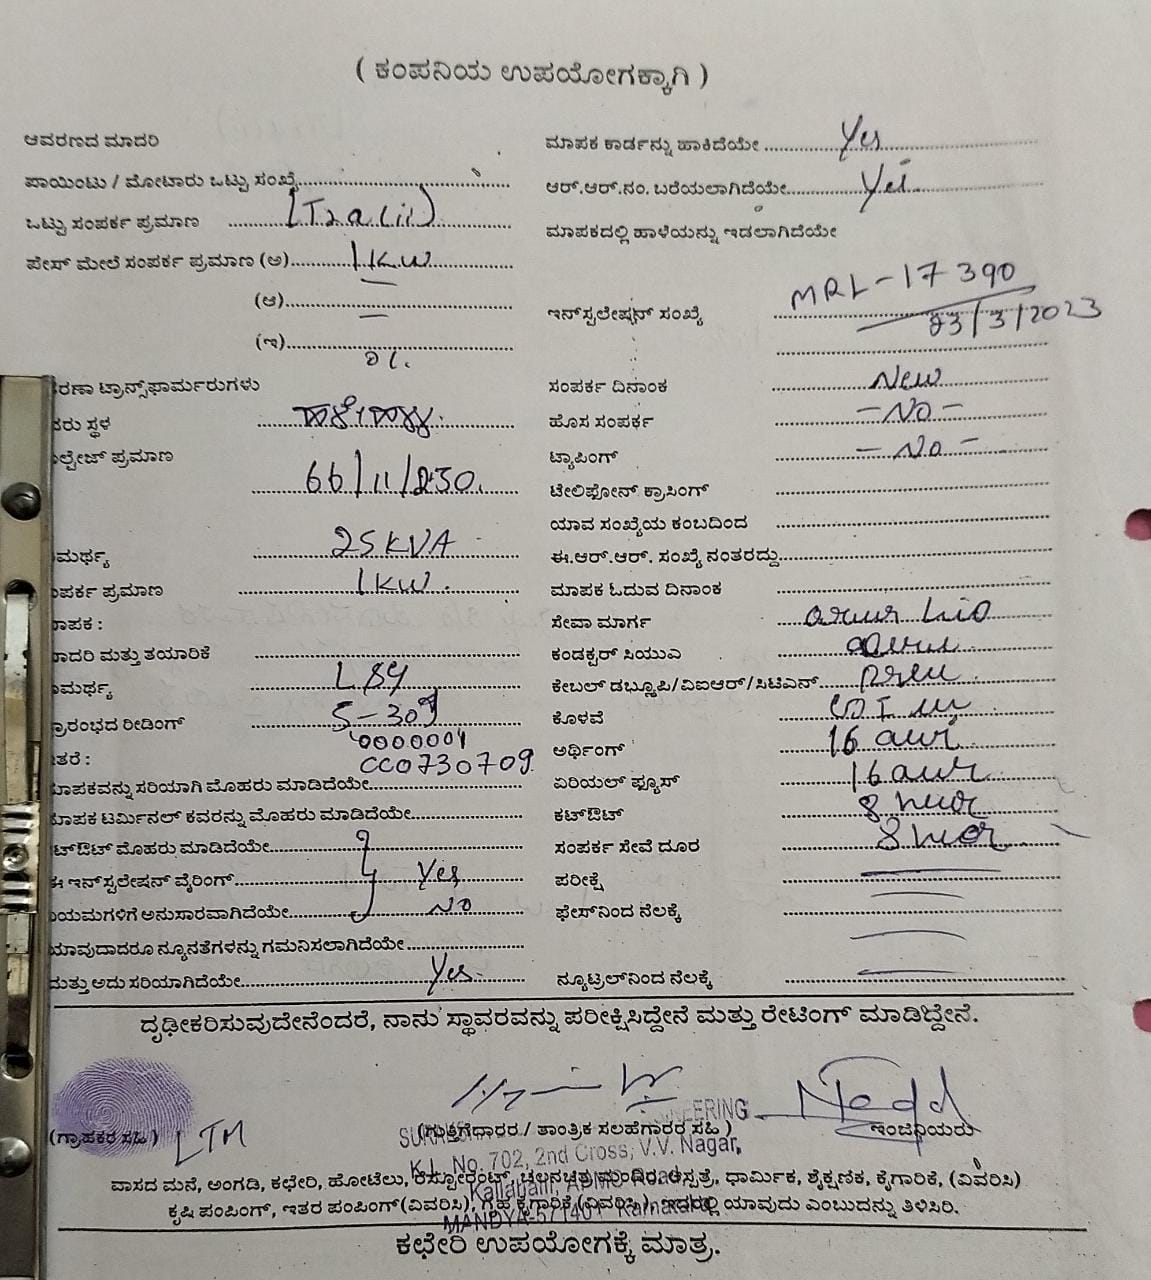 ( ಕಂಪನಿಯ ಉಪಯೋಗಕ್ಕಾಗಿ )
ಆವರಣದ ಮಾದರಿ
ಪಾಯಿಂಟು / ಮೋಟಾರು ಒಟ್ಟು ಸಂಖ್ಯೆ
ಒಟ್ಟು ಸಂಪರ್ಕ ಪ್ರಮಾಣ
ಪೇಸ್ ಮೇಲೆ ಸಂಪರ್ಕ ಪ್ರಮಾಣ (ಅ) 1KW
(ಆ)
(ಇ)
ರಣಾ ಟ್ರಾನ್ಸ್‌ಫಾರ್ಮರುಗಳು
ರು ಸ್ಥಳ
ಲ್ಟೇಜ್ ಪ್ರಮಾಣ 66/11/230.
ಮರ್ಥ್ಯ 25KVA
ಪರ್ಕ ಪ್ರಮಾಣ 1KW.
ಾಪಕ :
ಾದರಿ ಮತ್ತು ತಯಾರಿಕೆ
ಮರ್ಥ್ಯ
ಪ್ರಾರಂಭದ ರೀಡಿಂಗ್ 5-30
0000001
ತರೆ : CC0730709
ಮಾಪಕವನ್ನು ಸರಿಯಾಗಿ ಮೊಹರು ಮಾಡಿದೆಯೇ
ಮಾಪಕ ಟರ್ಮಿನಲ್ ಕವರನ್ನು ಮೊಹರು ಮಾಡಿದೆಯೇ
ಟ್‌ಔಟ್ ಮೊಹರು ಮಾಡಿದೆಯೇ
ಈ ಇನ್‌ಸ್ಟಲೇಷನ್ ವೈರಿಂಗ್ Yes
ಯಮಗಳಿಗೆ ಅನುಸಾರವಾಗಿದೆಯೇ NO
ಯಾವುದಾದರೂ ನ್ಯೂನತೆಗಳನ್ನು ಗಮನಿಸಲಾಗಿದೆಯೇ
ಮತ್ತು ಅದು ಸರಿಯಾಗಿದೆಯೇ Yes
ಮಾಪಕ ಕಾರ್ಡನ್ನು ಹಾಕಿದೆಯೇ Yes
ಆರ್.ಆರ್.ನಂ. ಬರೆಯಲಾಗಿದೆಯೇ Yes
ಮಾಪಕದಲ್ಲಿ ಹಾಳೆಯನ್ನು ಇಡಲಾಗಿದೆಯೇ
ಇನ್‌ಸ್ಟಲೇಷನ್ ಸಂಖ್ಯೆ MRL-17390
23/3/2023
ಸಂಪರ್ಕ ದಿನಾಂಕ New
ಹೊಸ ಸಂಪರ್ಕ -NO-
ಟ್ಯಾಪಿಂಗ್ -NO-
ಟೇಲಿಫೋನ್ ಕ್ರಾಸಿಂಗ್
ಯಾವ ಸಂಖ್ಯೆಯ ಕಂಬದಿಂದ
ಈ.ಆರ್.ಆರ್. ಸಂಖ್ಯೆ ನಂತರದ್ದು
ಮಾಪಕ ಓದುವ ದಿನಾಂಕ
ಸೇವಾ ಮಾರ್ಗ
ಕಂಡಕ್ಟರ್ ಸಿಯುಎ
ಕೇಬಲ್ ಡಬ್ಲ್ಯೂಪಿ/ವಿಐಆರ್/ಸಿಟಿಎಸ್
ಕೊಳವೆ
ಅರ್ಥಿಂಗ್ 16
ಏರಿಯಲ್ ಫ್ಯೂಸ್ 16
ಕಟ್‌ಔಟ್ 8
ಸಂಪರ್ಕ ಸೇವೆ ದೂರ 8
ಪರೀಕ್ಷೆ
ಫೇಸ್‌ನಿಂದ ನೆಲಕ್ಕೆ
ನ್ಯೂಟ್ರಲ್‌ನಿಂದ ನೆಲಕ್ಕೆ
ದೃಢೀಕರಿಸುವುದೇನೆಂದರೆ, ನಾನು ಸ್ಥಾವರವನ್ನು ಪರೀಕ್ಷಿಸಿದ್ದೇನೆ ಮತ್ತು ರೇಟಿಂಗ್ ಮಾಡಿದ್ದೇನೆ.
(ಗ್ರಾಹಕರ ಸಹಿ) LTM
(ಗುತ್ತಿಗೆಧಾರರ / ತಾಂತ್ರಿಕ ಸಲಹೆಗಾರರ ಸಹಿ )
ಇಂಜಿನಿಯರು
K.L. No. 702, 2nd Cross, V.V. Nagar,
Kallahalli,
MANDYA-571401 Karnataka
ವಾಸದ ಮನೆ, ಅಂಗಡಿ, ಕಛೇರಿ, ಹೋಟೆಲು, ರೆಸ್ಟೋರೆಂಟ್, ಚಲನಚಿತ್ರ ಮಂದಿರ, ಆಸ್ಪತ್ರೆ, ಧಾರ್ಮಿಕ, ಶೈಕ್ಷಣಿಕ, ಕೈಗಾರಿಕೆ, (ವಿವರಿಸಿ)
ಕೃಷಿ ಪಂಪಿಂಗ್, ಇತರ ಪಂಪಿಂಗ್(ವಿವರಿಸಿ), ಗೃಹ ಕೈಗಾರಿಕೆ(ವಿವರಿಸಿ) ಇದರಲ್ಲಿ ಯಾವುದು ಎಂಬುದನ್ನು ತಿಳಿಸಿರಿ.
ಕಛೇರಿ ಉಪಯೋಗಕ್ಕೆ ಮಾತ್ರ.